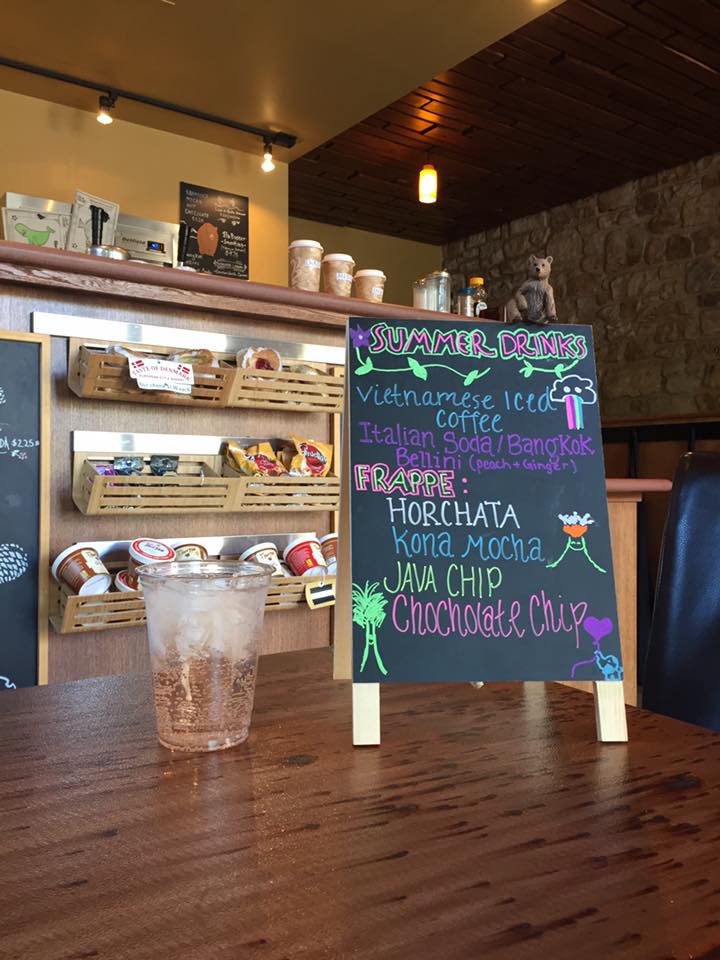 SUMMER DRINKS
Vietnamese Iced
Coffee
Italian Soda/Bangkok
Bellini (peach + Ginger)
FRAPPE:
HORCHATA
Kona Mocha
JAVA CHIP
Chocholate Chip
TASTE OF DENMARK
$2.25